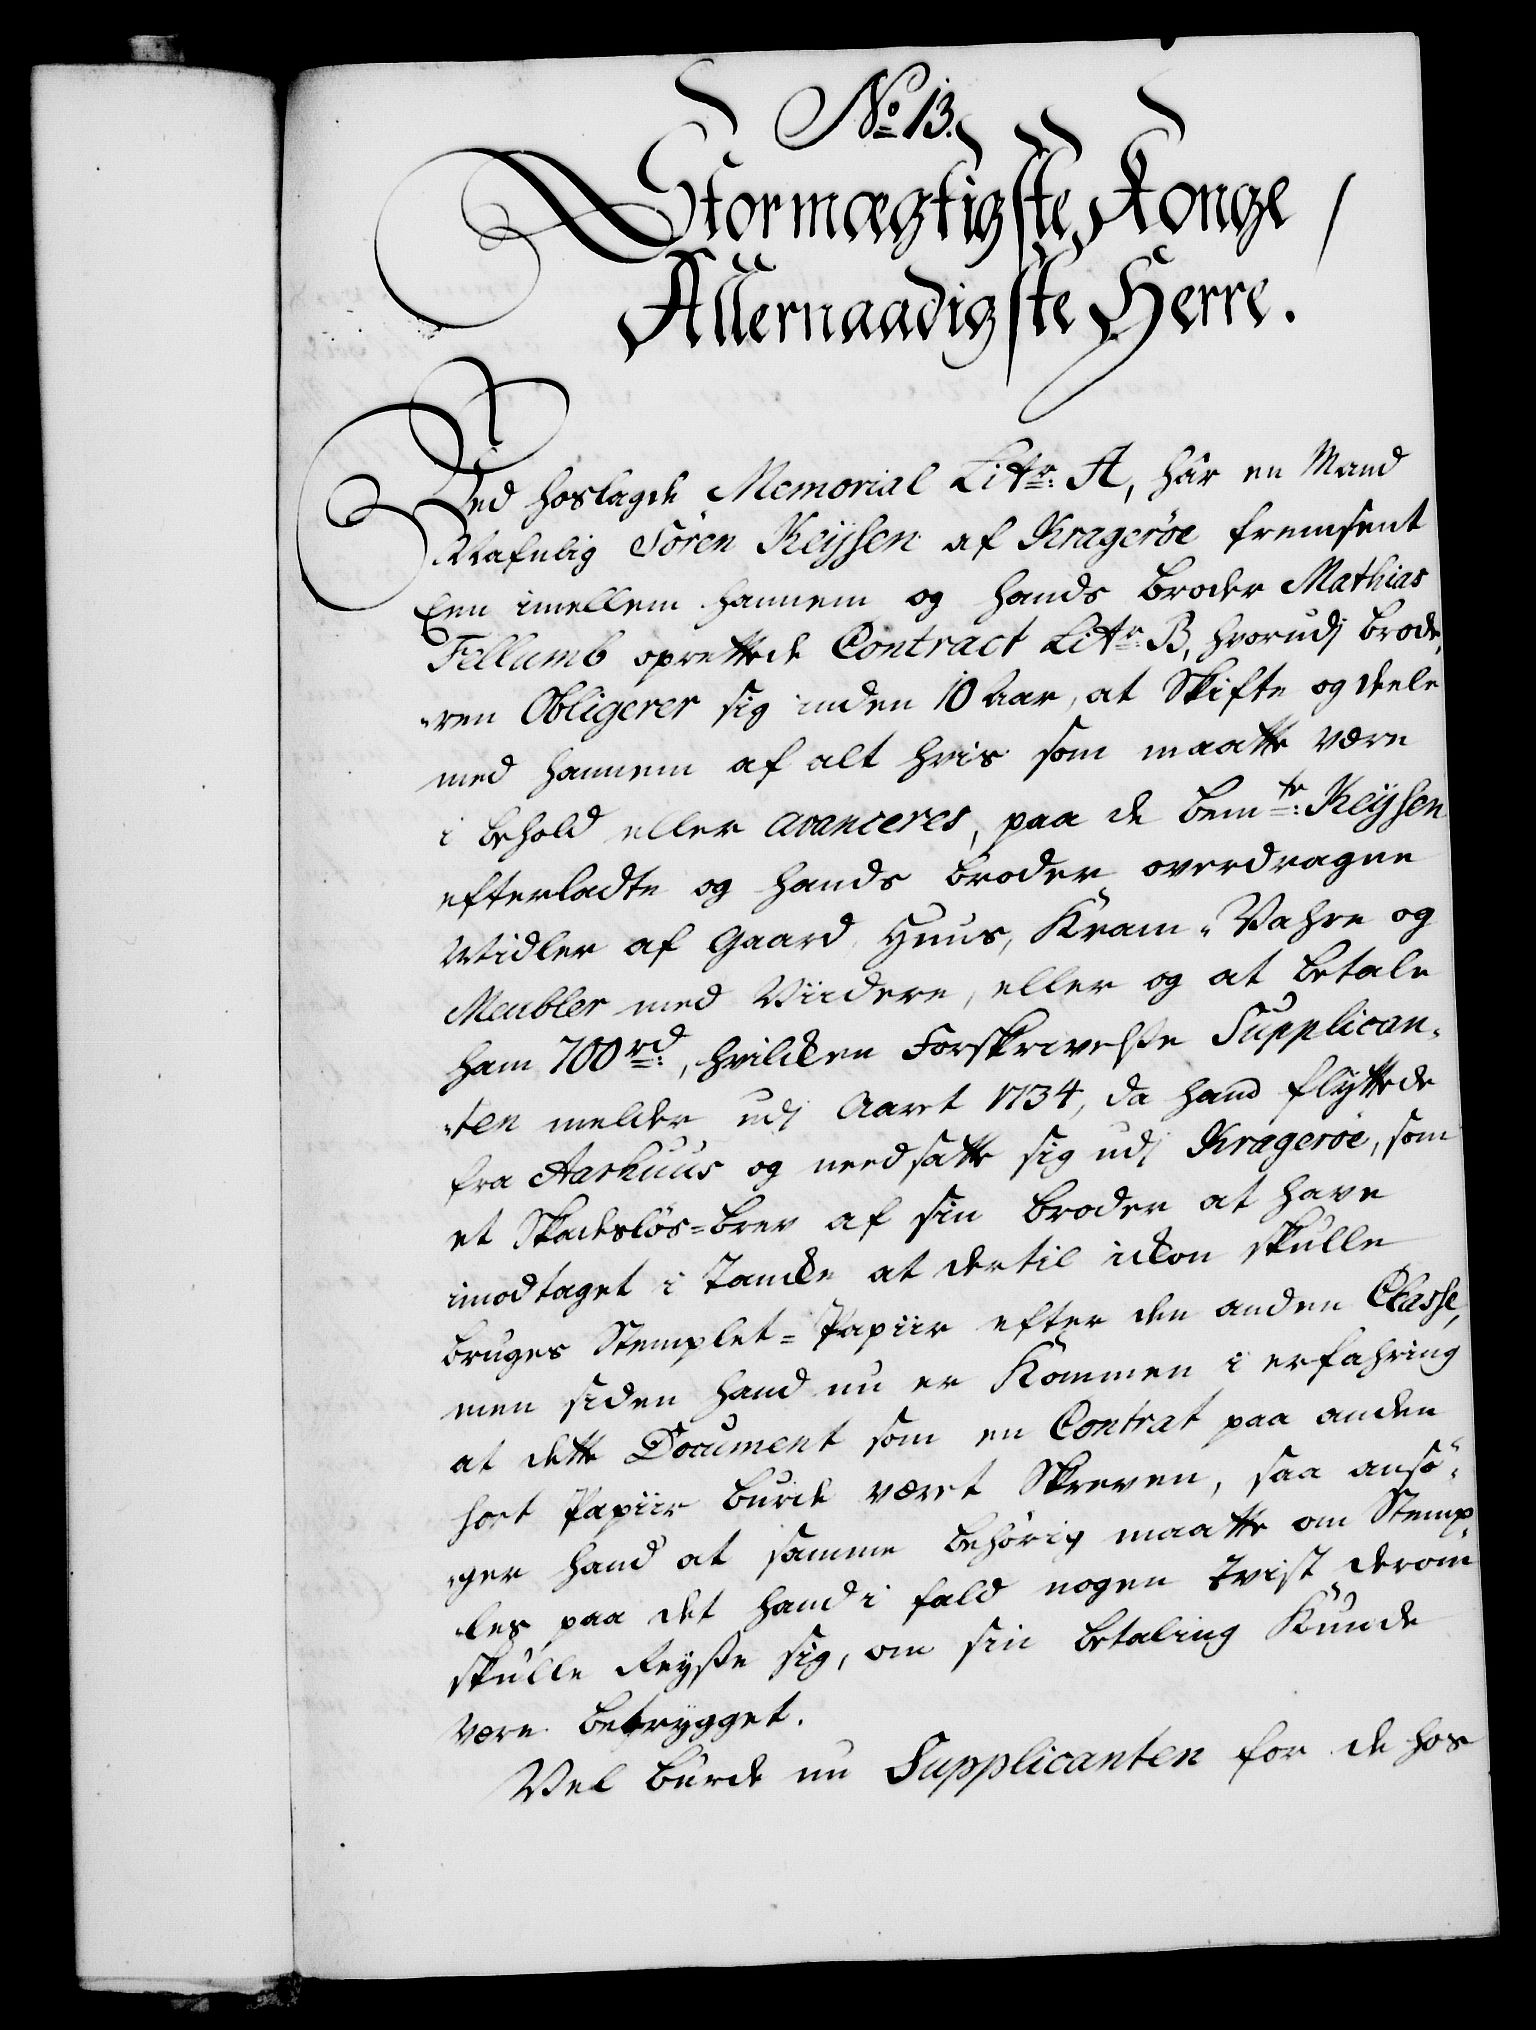 No 13.
Stormægtigste Konge /
Allernaadigste Herre.
Ved hoslagde Memorial Litr: A, hár en Mand
Nafnlig Sören Keysen af Kragerøe fremsent
Een imellem hannem og hands broder Mathias
Fellumb oprettede Contract Litr: B, hvorudj brode,
„ren Obligerer sig inden 10 Aar, at Skifte og deele
med hannem af alt hvis som maatte være
i behold eller avanceres, paa de bemte: Keysen
efterladte og hands broder overdragne
Midler af Gaard, Huus, Kram„Vahre og
Meubler med Viidere, eller og at betale
ham 700 rd:, hvilcken Forskrivelsse Supplican„
„ten melder udj Aaret 1734, da hand flyttede
fra Aarhuus og needsatte sig udj Kragerøe, som
et Skadesløs=brev af sin broder at have
imodtaget i Tancke at dertil ickon skulle
bruges Stemplet=Papiir efter den anden Classe,
men siden hand nu er kommen i erfahring
at dette Document som en Contrat paa anden
hort Papiir burde været Skreven, saa ansö„
„ger hand at samme behörig maatte om Stemp„
„les, paa det hand i fald nogen tvist derom
skulle Reysse sig, om sin betaling kunde
være betrygget.
Vel burde nu Supplicanten for de hos